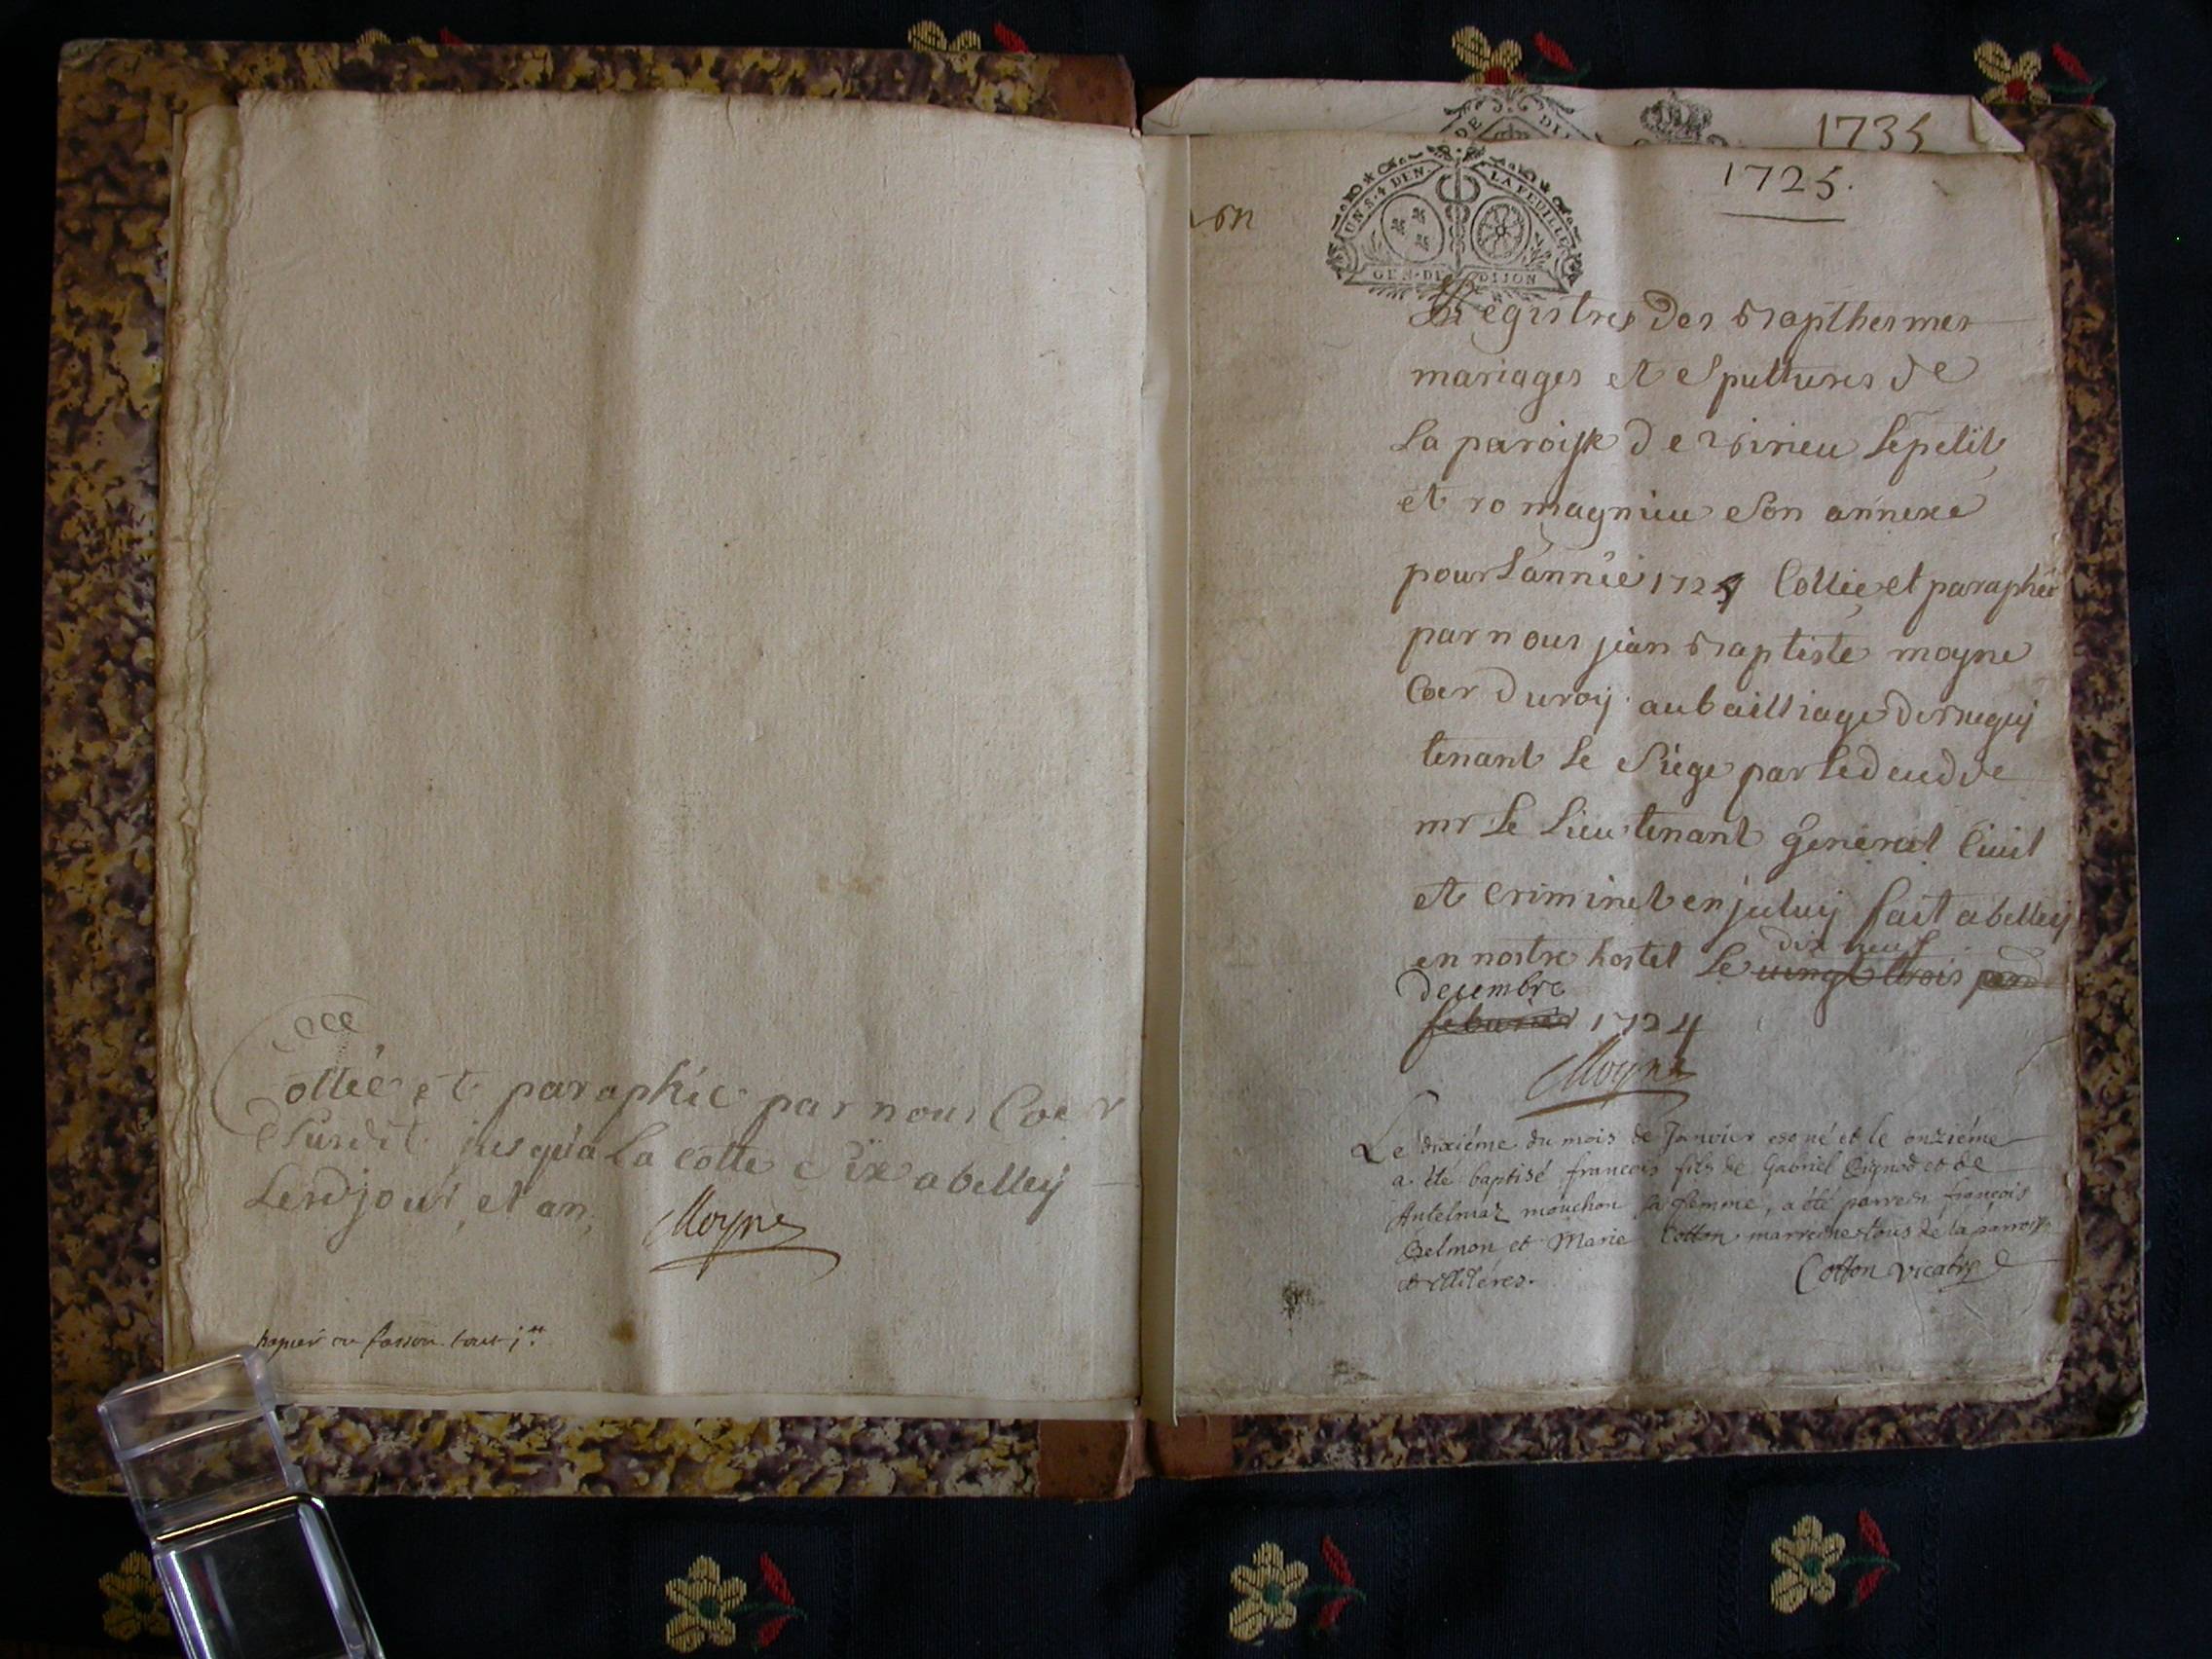 Cottée et paraphée par nous Coer
Susdit jusqu'a la cotte dix a belley
Lesd jour et an,
Moyne
papier ou
1735
1725.
UN S. 4 DEN. LA FEUILLE
GEN. DE DIJON
Registres des Bapthesmes
mariages et Spultures de
La paroisse de virieu Lepetit
et romagnieu Son annexe
pour Lannée 1725 Cottée et paraphée
par nous jean Baptiste moyne
Coer du roy au bailliage de
tenant Le Siege par Led de
mr Le Lieutenant General Civil
et Criminel en jceluy fait a belley
en nostre hostel Le vingt trois dix neuf
decembre
febvrier 1724
Moyne
Le dixiéme du mois de Janvier est né et le onziéme
a été baptisé francois fils de Gabriel et de
Antelmaz mouchon sa femme, a été parrein francois
et Marie Cotton marreine tous de la parroisse
Cotton vicaire